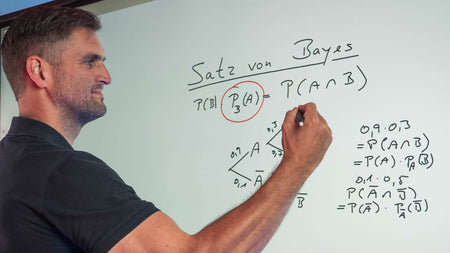 Satz von Bayes
P(B) · P_B(A) = P(A ∩ B)
0,9 A 0,3
0,1 A̅
B̅
0,9 · 0,3
= P(A ∩ B)
= P(A) · P_A(B)
0,1 · 0,5
P(A̅ ∩ B̅)
= P(A̅) · P_A̅(B̅)